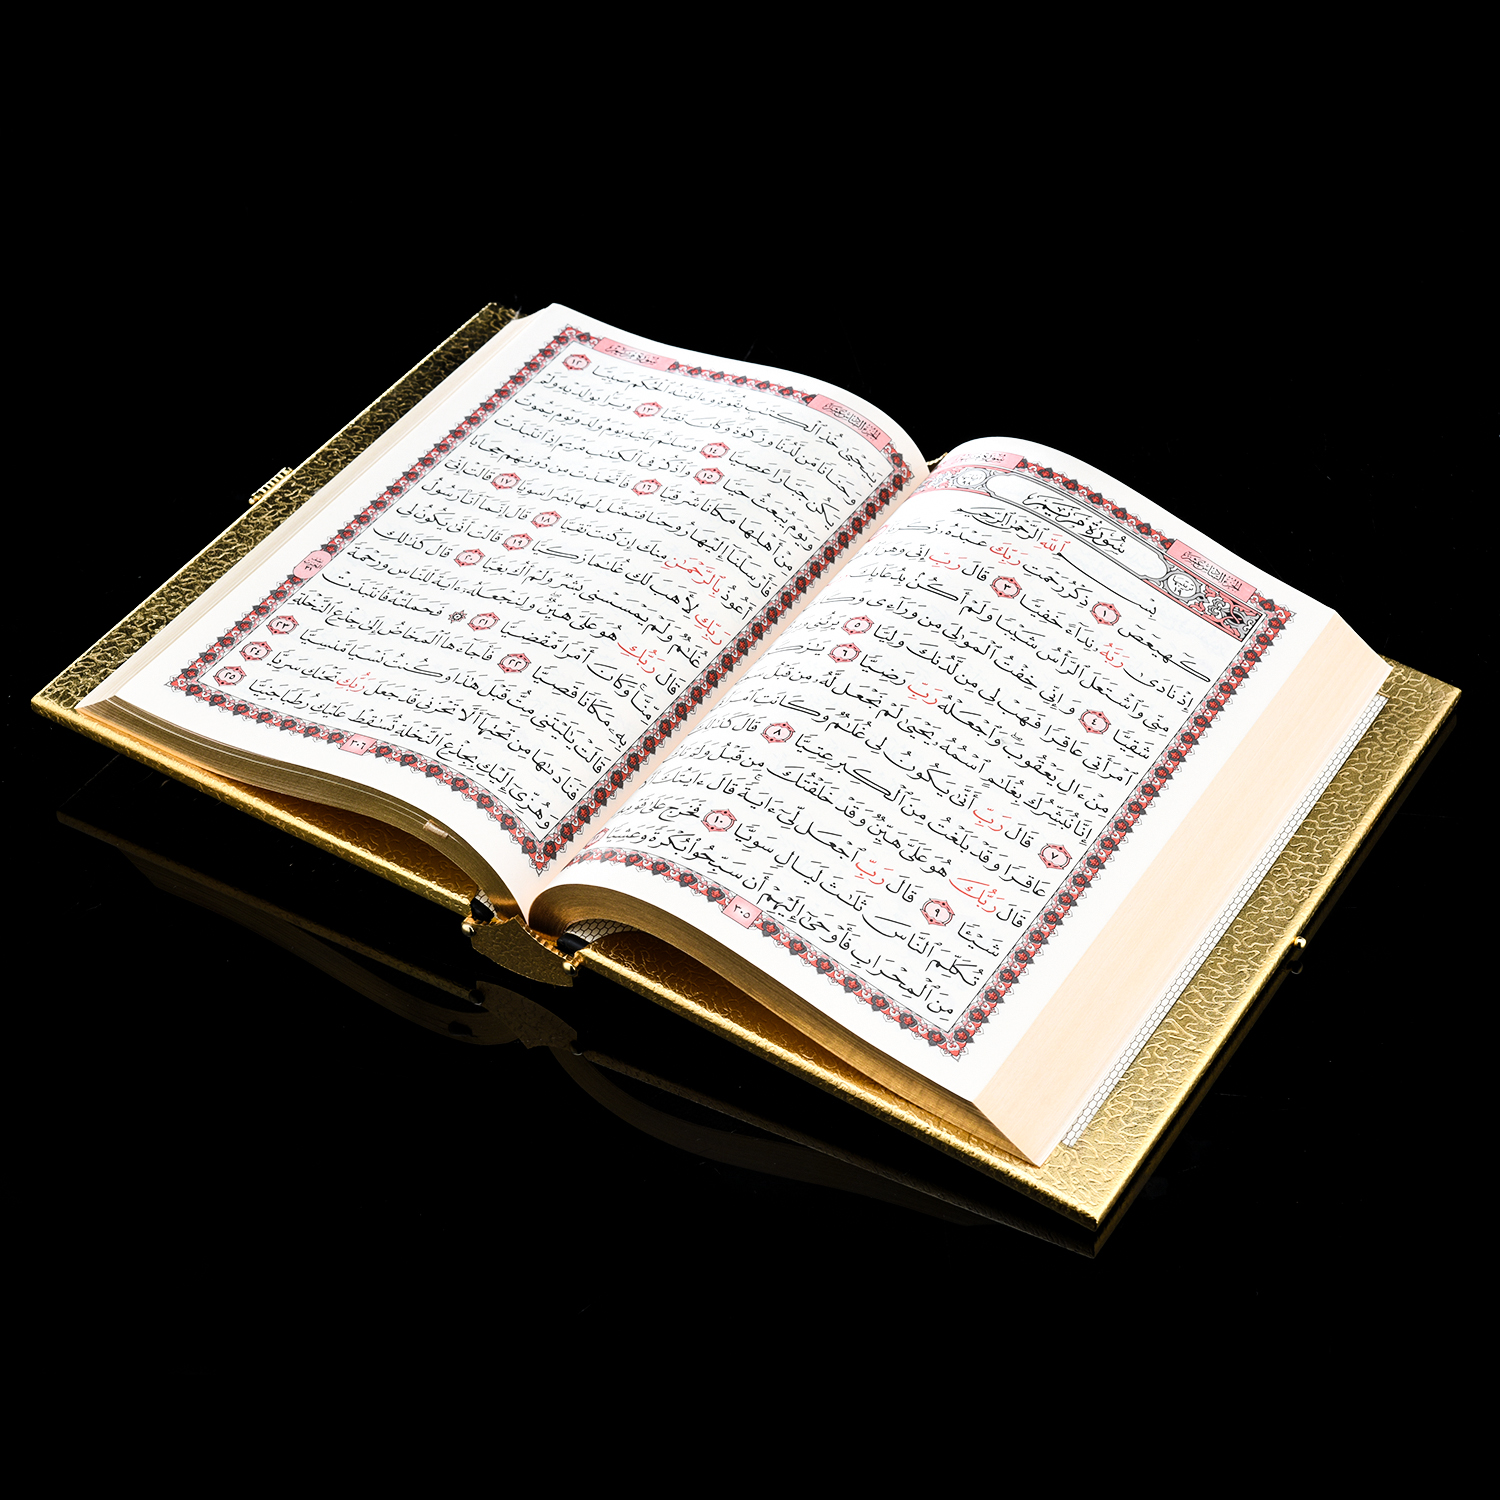 سُورَةُ مَرْيَمَ
الجزء السادس عشر
سُورَةُ مَرْيَمَ
بِسْمِ ٱللَّهِ ٱلرَّحْمَٰنِ ٱلرَّحِيمِ
كٓهيعٓصٓ ١ ذِكْرُ رَحْمَتِ رَبِّكَ عَبْدَهُۥ
إِذْ نَادَىٰ رَبَّهُۥ نِدَآءً خَفِيًّا ٣ قَالَ رَبِّ إِنِّى وَهَنَ
مِنِّى وَٱشْتَعَلَ ٱلرَّأْسُ شَيْبًا وَلَمْ أَكُنۢ بِدُعَآئِكَ
شَقِيًّا ٤ وَإِنِّى خِفْتُ ٱلْمَوَٰلِىَ مِن وَرَآءِى
ٱمْرَأَتِى عَاقِرًا فَهَبْ لِى مِن لَّدُنكَ وَلِيًّا ٥ يَرِثُنِى
مِنْ ءَالِ يَعْقُوبَ وَٱجْعَلْهُ رَبِّ رَضِيًّا ٦
إِنَّا نُبَشِّرُكَ بِغُلَٰمٍ ٱسْمُهُۥ يَحْيَىٰ لَمْ نَجْعَل لَّهُۥ مِن قَبْلُ
٧ قَالَ رَبِّ أَنَّىٰ يَكُونُ لِى غُلَٰمٌ وَكَانَتِ
عَاقِرًا وَقَدْ بَلَغْتُ مِنَ ٱلْكِبَرِ عِتِيًّا ٨ قَالَ كَذَٰلِكَ
قَالَ رَبُّكَ هُوَ عَلَىَّ هَيِّنٌ وَقَدْ خَلَقْتُكَ مِن قَبْلُ وَلَمْ
شَيْـًٔا ٩ قَالَ رَبِّ ٱجْعَل لِّىٓ ءَايَةً قَالَ ءَايَتُكَ
تُكَلِّمَ ٱلنَّاسَ ثَلَٰثَ لَيَالٍ سَوِيًّا ١٠ فَخَرَجَ عَلَىٰ
مِنَ ٱلْمِحْرَابِ فَأَوْحَىٰٓ إِلَيْهِمْ أَن سَبِّحُوا۟ بُكْرَةً وَعَشِيًّا
٣٠٥
الجزء السادس عشر
سُورَةُ مَرْيَمَ
يَٰيَحْيَىٰ خُذِ ٱلْكِتَٰبَ بِقُوَّةٍ وَءَاتَيْنَٰهُ ٱلْحُكْمَ صَبِيًّا ١٢
وَحَنَانًا مِّن لَّدُنَّا وَزَكَوٰةً وَكَانَ تَقِيًّا ١٣ وَبَرًّۢا بِوَٰلِدَيْهِ وَلَمْ
يَكُن جَبَّارًا عَصِيًّا ١٤ وَسَلَٰمٌ عَلَيْهِ يَوْمَ وُلِدَ وَيَوْمَ يَمُوتُ
وَيَوْمَ يُبْعَثُ حَيًّا ١٥ وَٱذْكُرْ فِى ٱلْكِتَٰبِ مَرْيَمَ إِذِ ٱنتَبَذَتْ
مِنْ أَهْلِهَا مَكَانًا شَرْقِيًّا ١٦ فَٱتَّخَذَتْ مِن دُونِهِمْ حِجَابًا
فَأَرْسَلْنَآ إِلَيْهَا رُوحَنَا فَتَمَثَّلَ لَهَا بَشَرًا سَوِيًّا ١٧ قَالَتْ إِنِّىٓ
أَعُوذُ بِٱلرَّحْمَٰنِ مِنكَ إِن كُنتَ تَقِيًّا ١٨ قَالَ إِنَّمَآ أَنَا۠ رَسُولُ
رَبِّكِ لِأَهَبَ لَكِ غُلَٰمًا زَكِيًّا ١٩ قَالَتْ أَنَّىٰ يَكُونُ لِى
غُلَٰمٌ وَلَمْ يَمْسَسْنِى بَشَرٌ وَلَمْ أَكُ بَغِيًّا ٢٠ قَالَ كَذَٰلِكِ
قَالَ رَبُّكِ هُوَ عَلَىَّ هَيِّنٌ وَلِنَجْعَلَهُۥٓ ءَايَةً لِّلنَّاسِ وَرَحْمَةً
مِّنَّا وَكَانَ أَمْرًا مَّقْضِيًّا ٢١ ۞ فَحَمَلَتْهُ فَٱنتَبَذَتْ
بِهِۦ مَكَانًا قَصِيًّا ٢٢ فَأَجَآءَهَا ٱلْمَخَاضُ إِلَىٰ جِذْعِ ٱلنَّخْلَةِ
قَالَتْ يَٰلَيْتَنِى مِتُّ قَبْلَ هَٰذَا وَكُنتُ نَسْيًا مَّنسِيًّا ٢٣
فَنَادَىٰهَا مِن تَحْتِهَآ أَلَّا تَحْزَنِى قَدْ جَعَلَ رَبُّكِ تَحْتَكِ سَرِيًّا ٢٤
وَهُزِّىٓ إِلَيْكِ بِجِذْعِ ٱلنَّخْلَةِ تُسَٰقِطْ عَلَيْكِ رُطَبًا جَنِيًّا ٢٥
٣٠٦